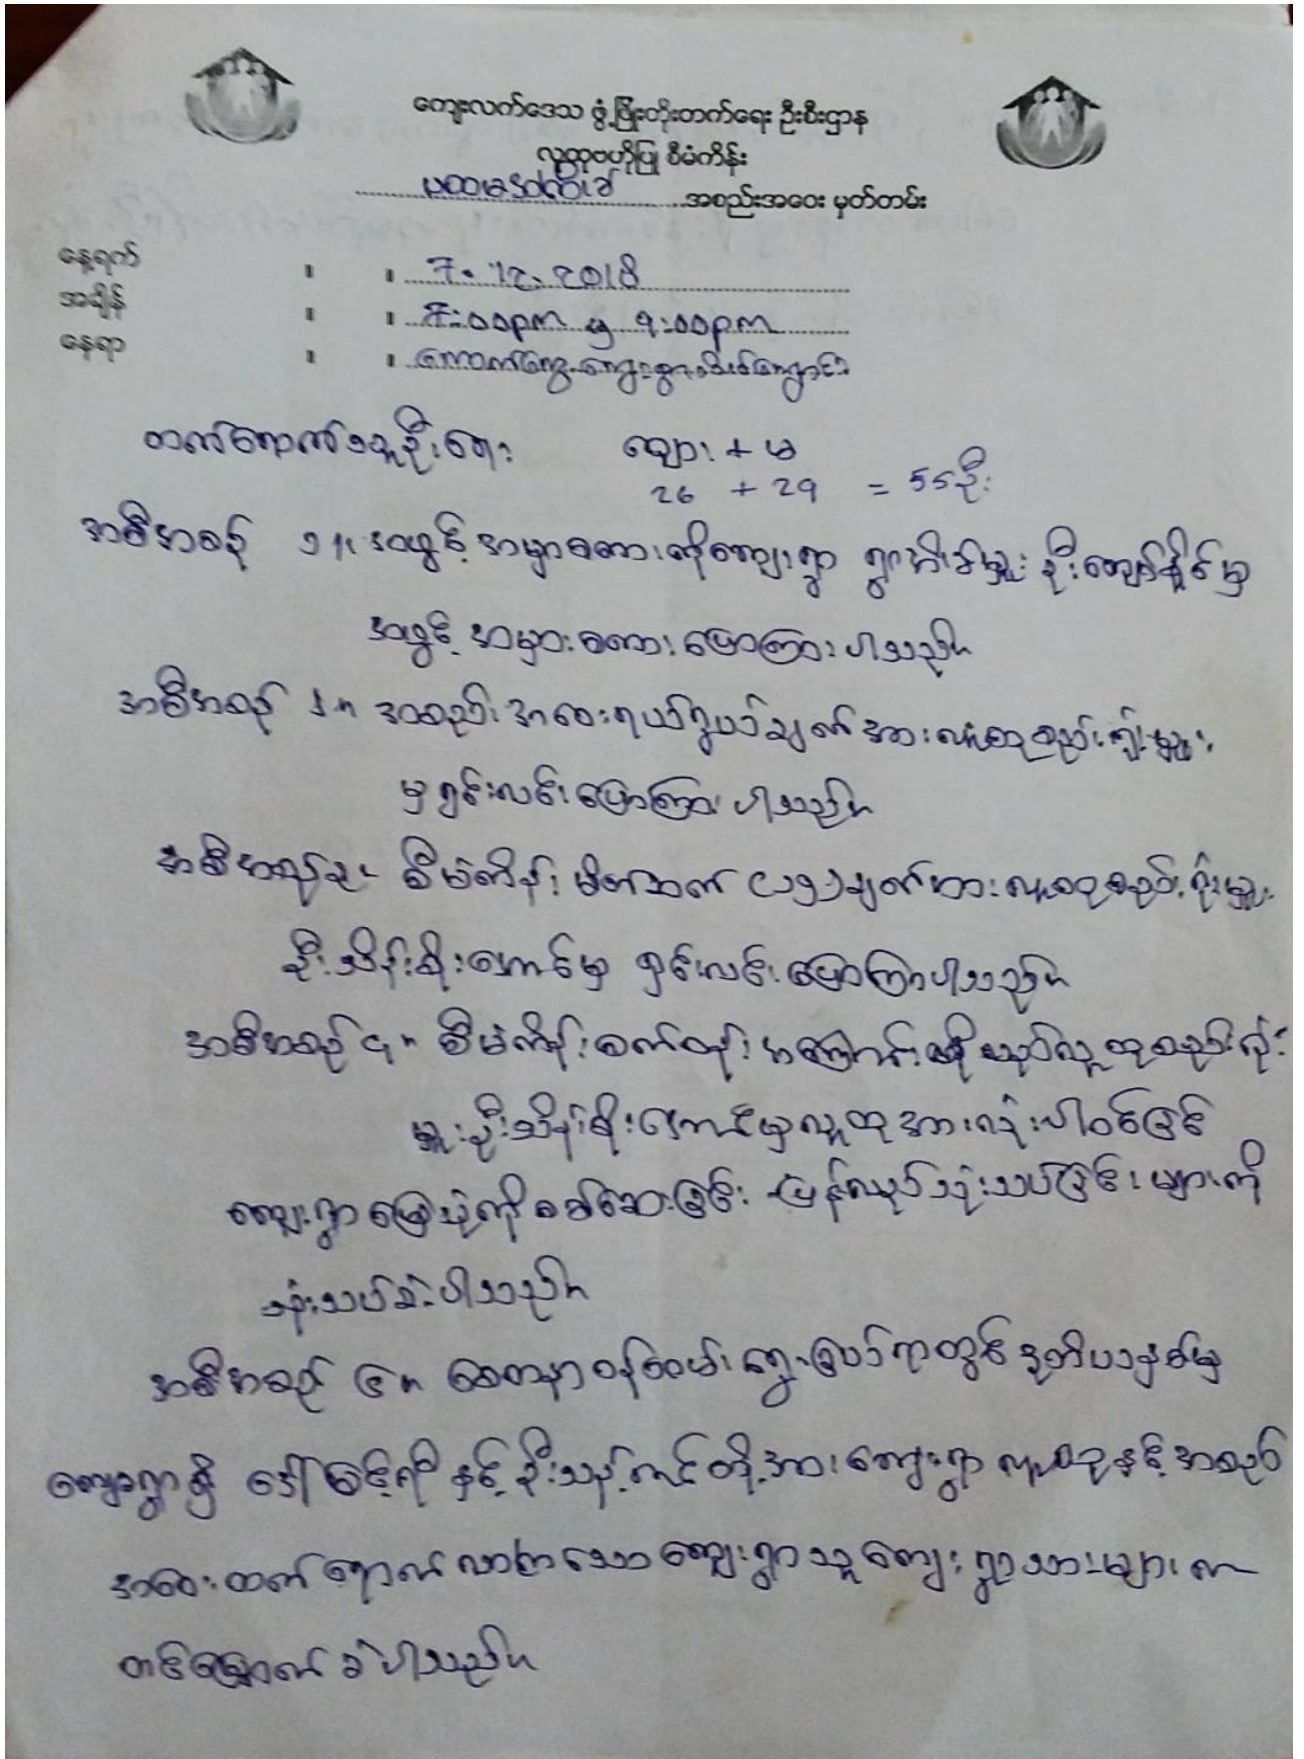 ကျေးလက်ဒေသ ဖွံ့ဖြိုးတိုးတက်ရေး ဦးစီးဌာန
လူထုဗဟိုပြု စီမံကိန်း
ပထမအကြိမ် အစည်းအဝေး မှတ်တမ်း
နေ့ရက် : : 7. 12. 2018
အချိန် : : 7:00pm မှ 9:00pm
နေရာ : : ကျေးရွာ
တက်ရောက်သူဦးရေး ကျား + မ
26 + 29 = 55ဦး
အစီအစဉ် ၁။ အဖွင့် အမှာစကားကိုကျေးရွာ ဦးကျော်နိုင်မှ
အဖွင့် အမှားစကားပြောကြားပါသည်။
အစီအစဉ် ၂။ အစည်းအဝေးရည်ရွယ်ချက်အားလူထုစည်းရုံးမှူး
မှရှင်းလင်းပြောကြားပါသည်။
အစီအစဉ် ၃။ စီမံကိန်း မိတ်ဆက် အားလူထုစည်းရုံးမှူး
ဦးသိန်းစိုးအောင်မှ ရှင်းလင်းပြောကြားပါသည်။
အစီအစဉ် ၄။ စီမံကိန်းစက်ဝန်း အကြောင်းကို လူထုစည်းရုံး
မှူးဦးသိန်းစိုးအောင်မှလူထုအားလုံးပါဝင်ခြင်း
ကျေးရွာမြေပုံကိုစစ်ဆေးခြင်း ပြန်လည်သုံးသပ်ခြင်းများကို
သုံးသပ်ခဲ့ပါသည်။
အစီအစဉ် ၅။ စေတနာ့ဝန်ထမ်းရွေးချယ်ရာတွင်
ကျေးရွာရှိ ဒေါ်မြင့်ရီ နှင့် တို့အားကျေးရွာ လူထုနှင့် အစည်း
အဝေးတက်ရောက်လာကြသော ကျေးရွာသူကျေးရွာသားများက
တင်မြှောက်ခဲ့ပါသည်။